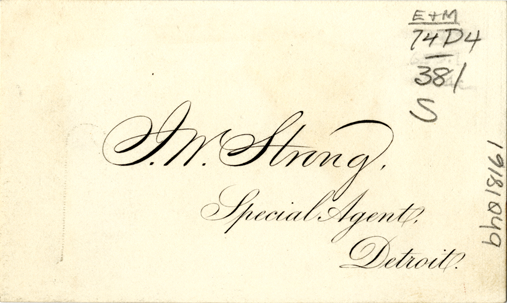 E+M
74D4
381
S
J.W. Strong,
Special Agent.
Detroit.